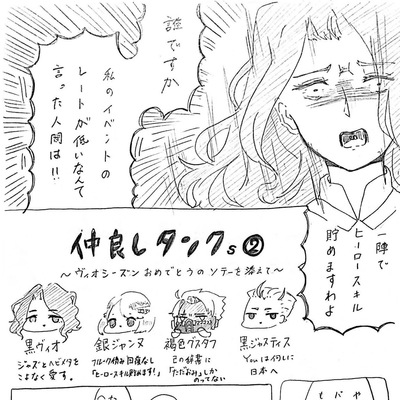 誰ですか
私のイベントの
レートが低いなんて
言った人間は!!
一陣で
ヒーロースキル
貯めますわよ
仲良しタンクs②
〜ヴィオシーズンおめでとうのソテーを添えて〜
黒ヴィオ
ジャズとヘビメタを
こよなく愛す。
銀ジャンヌ
フルーク積み回復なし
「ヒーロースキル貯めます!」
褐色グスタフ
己の辞書に
「ただおみ」しか
のってない
黒ジャスティス
Youは何しに
日本へ